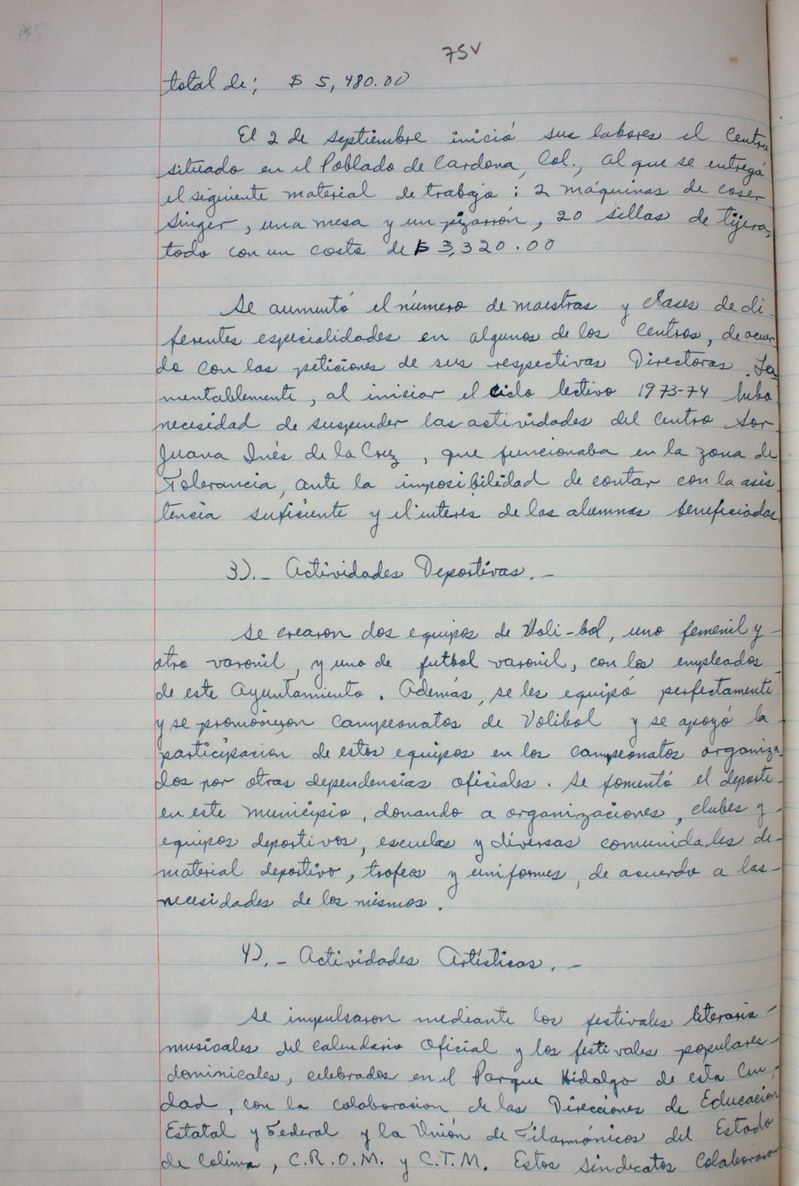 75v
total de; $ 5,480.00
El 2 de septiembre inició sus labores el Centro
situado en el Poblado de Cardona, Col., al que se entregó
el siguiente material de trabajo: 2 máquinas de coser
Singer, una mesa y un pizarrón, 20 sillas de tijera,
todo con un costo de $ 3,320.00
Se aumentó el número de maestras y clases de di-
ferentes especialidades en algunos de los Centros, de acuer-
do con las peticiones de sus respectivas Directoras. La-
mentablemente, al iniciar el ciclo lectivo 1973-74 hubo
necesidad de suspender las actividades del Centro Sor
Juana Inés de la Cruz, que funcionaba en la zona de
Tolerancia, ante la imposibilidad de contar con la asis
tencia suficiente y el interés de las alumnas beneficiadas.
3).- Actividades Deportivas.-
Se crearon dos equipos de Voli-bol, uno femenil y -
otro varonil, y uno de futbol varonil, con los empleados
de este Ayuntamiento. Además, se les equipó perfectamente
y se promovieron campeonatos de Volibol y se apoyó la
participación de estos equipos en los campeonatos organiza-
dos por otras dependencias oficiales. Se fomentó el deporte
en este municipio, donando a organizaciones, clubes y -
equipos deportivos, escuelas y diversas comunidades de-
material deportivo, trofeos y uniformes, de acuerdo a las -
necesidades de los mismos.
4).- Actividades Artísticas.-
Se impulsaron mediante los festivales literario-
musicales del calendario oficial y los festivales populares-
dominicales, celebrados en el Parque Hidalgo de esta Ciu-
dad, con la colaboracion de las Direcciones de Educacion
Estatal y Federal y la Unión de Filarmónicos del Estado
de Colima, C.R.O.M. y C.T.M. Estos sindicatos colaboraron